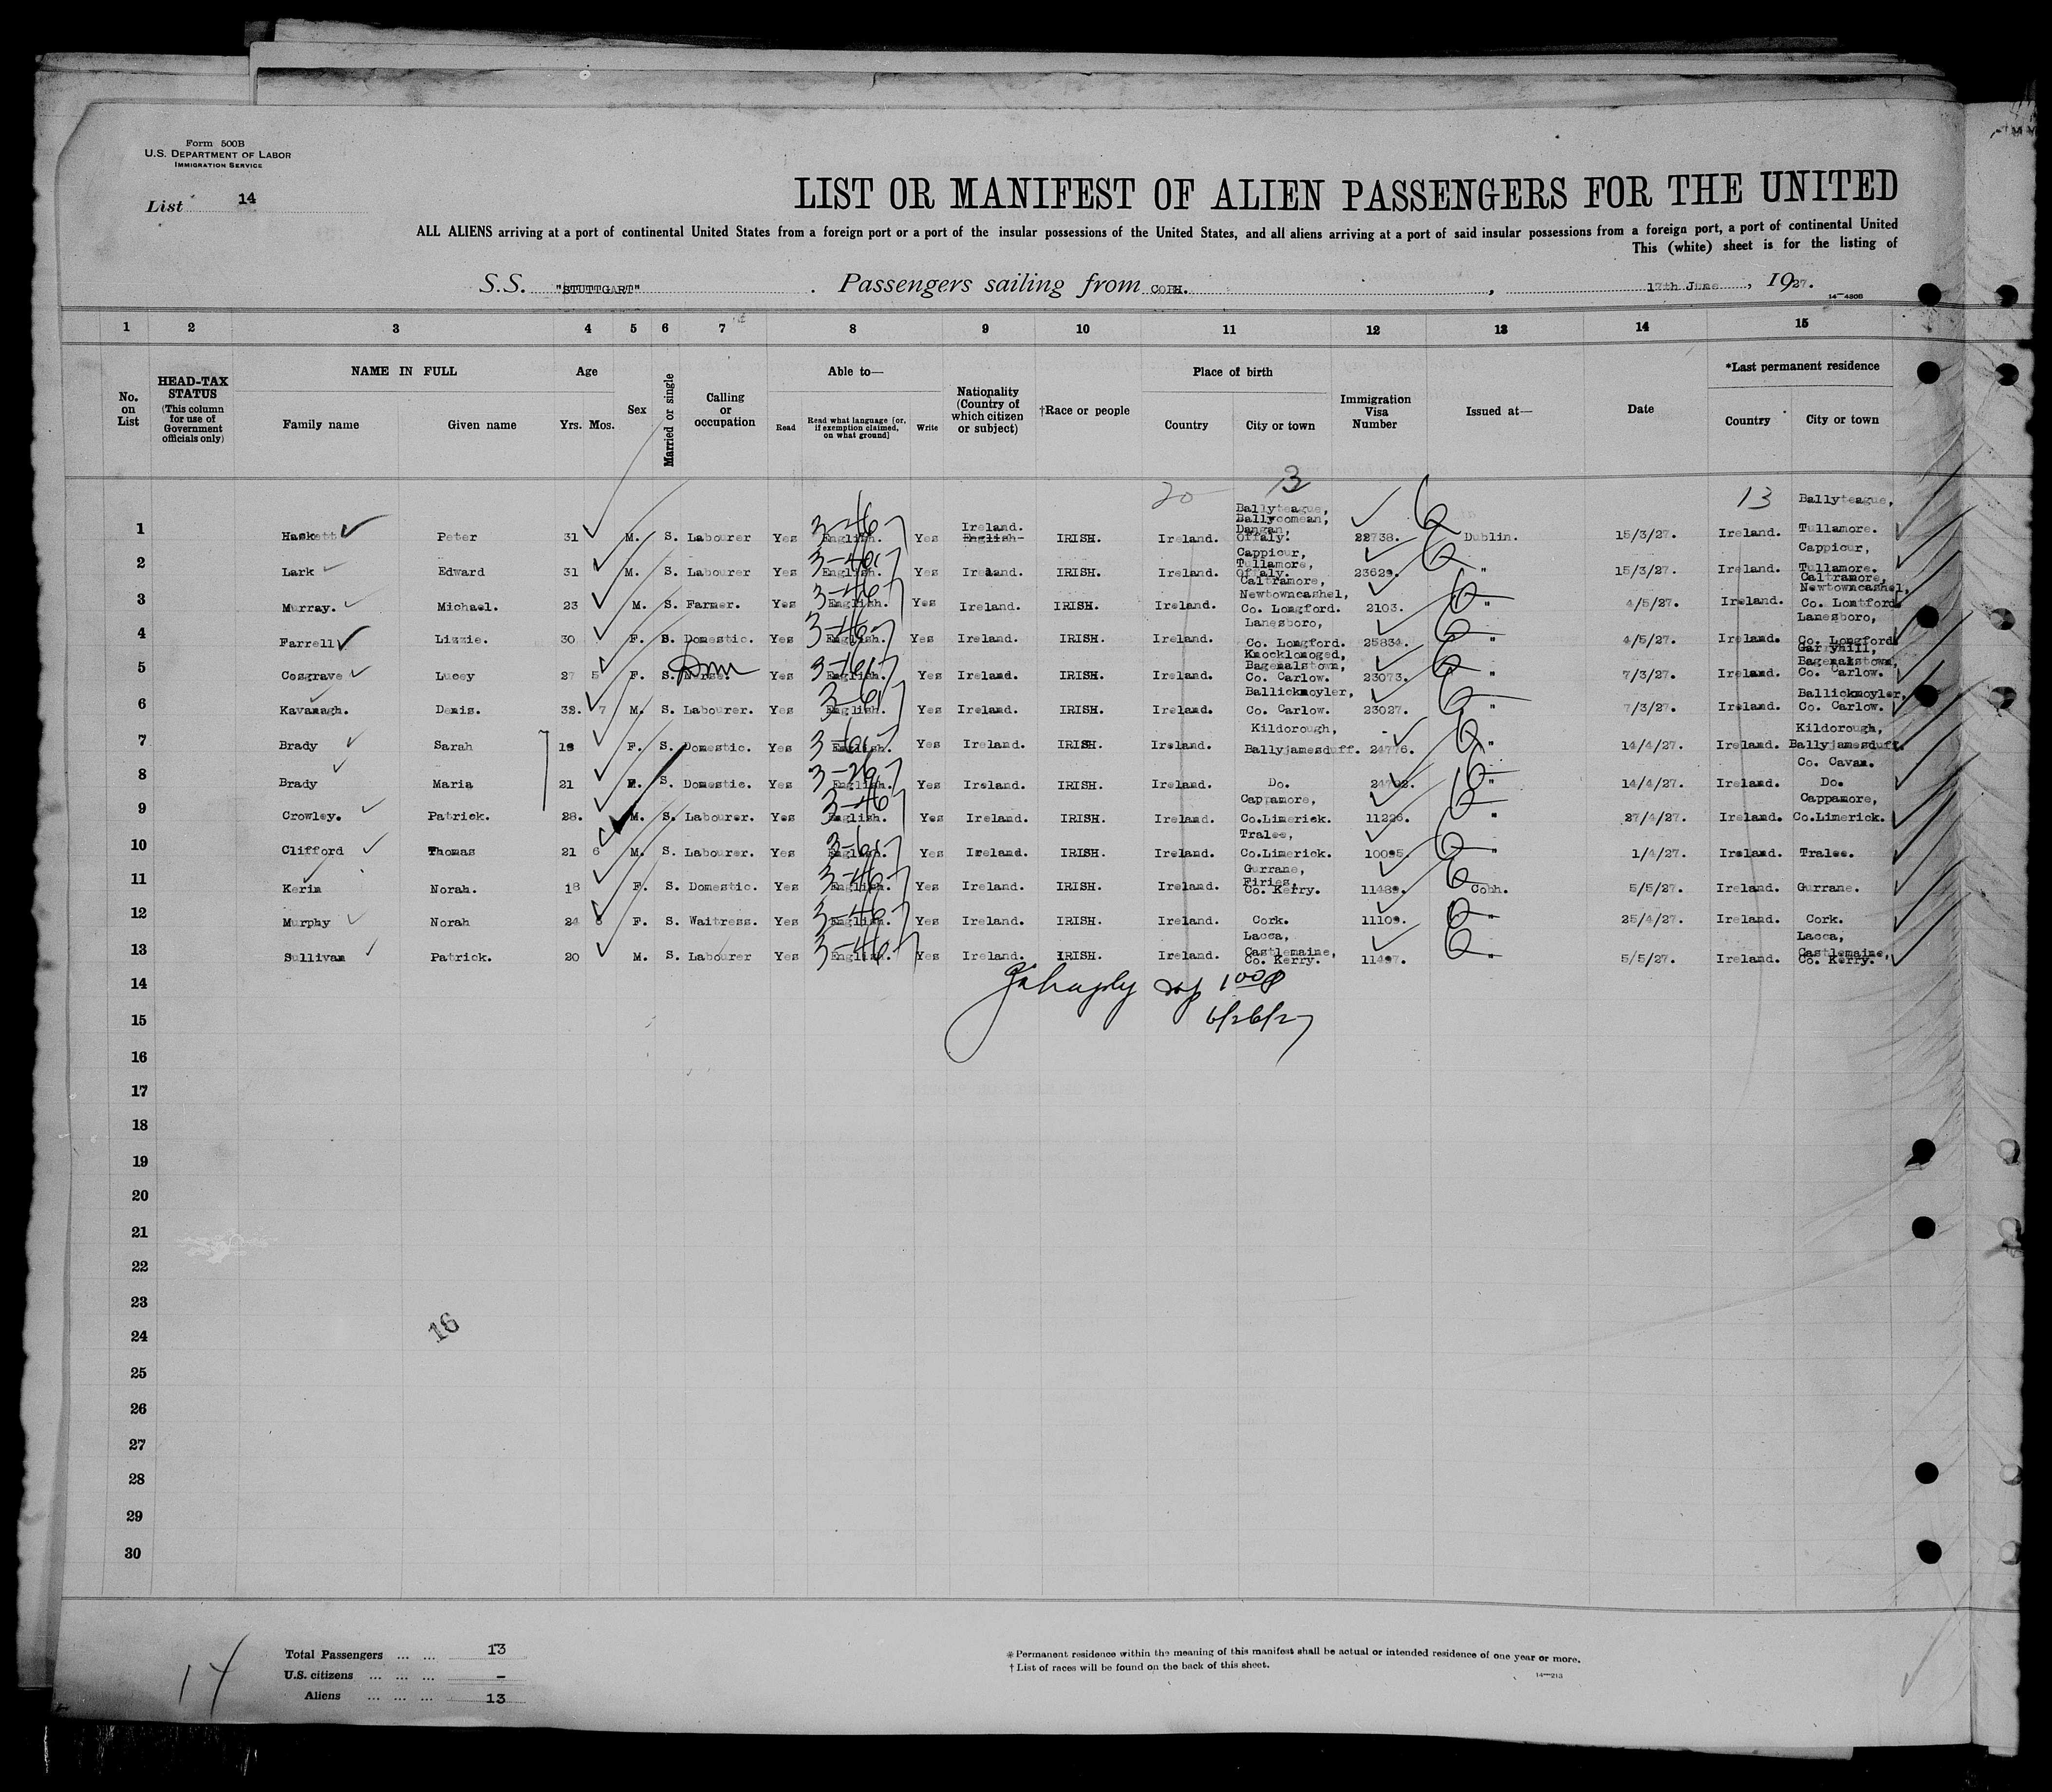 Form 500B
U.S. DEPARTMENT OF LABOR
IMMIGRATION SERVICE
List 14
LIST OR MANIFEST OF ALIEN PASSENGERS FOR THE UNITED
ALL ALIENS arriving at a port of continental United States from a foreign port or a port of the insular possessions of the United States, and all aliens arriving at a port of said insular possessions from a foreign port, a port of continental United
This (white) sheet is for the listing of
S.S. "STUTTGART" . Passengers sailing from COBH. , 17th June , 1927.
1 2 3 4 5 6 7 8 9 10 11 12 13 14 15
No. on List
HEAD-TAX STATUS (This column for use of Government officials only)
NAME IN FULL
Family name Given name
Age
Yrs. Mos.
Sex
Married or single
Calling or occupation
Able to—
Read
Read what language [or, if exemption claimed, on what ground]
Write
Nationality (Country of which citizen or subject)
†Race or people
Place of birth
Country City or town
Immigration Visa Number
Issued at—
Date
*Last permanent residence
Country City or town
20 13 13
1 Haskett Peter 31 M. S. Labourer Yes English. Yes Ireland. English IRISH. Ireland. Ballyteague, Ballycomean, Dangan, Offaly. 22738. Dublin. 15/3/27. Ireland. Ballyteague, Tullamore.
2 Lark Edward 31 M. S. Labourer Yes English. Yes Ireland. IRISH. Ireland. Cappicur, Tullamore, Offaly. 23629. " 15/3/27. Ireland. Cappicur, Tullamore.
3 Murray. Michael. 23 M. S. Farmer. Yes English. Yes Ireland. IRISH. Ireland. Caltramore, Newtowncashel, Co. Longford. 2103. " 4/5/27. Ireland. Caltramore, Newtowncashel, Co. Lontford.
4 Farrell Lizzie. 30 F. S. Domestic. Yes English. Yes Ireland. IRISH. Ireland. Lanesboro, Co. Longford. 25834. " 4/5/27. Ireland. Lanesboro, Co. Longford.
5 Cosgrave Lucey 27 5 F. S. Nurse. Dom Yes English. Yes Ireland. IRISH. Ireland. Knocklonoged, Bagenalstown, Co. Carlow. 23073. " 7/3/27. Ireland. Garryhill, Bagenalstown, Co. Carlow.
6 Kavanagh. Denis. 32. 7 M. S. Labourer. Yes English. Yes Ireland. IRISH. Ireland. Ballickmoyler, Co. Carlow. 23027. " 7/3/27. Ireland. Ballickmoyler, Co. Carlow.
7 Brady Sarah F. S. Domestic. Yes English. Yes Ireland. IRISH. Ireland. Kildorough, Ballyjamesduff. 24776. " 14/4/27. Ireland. Kildorough, Ballyjamesduff. Co. Cavan.
8 Brady Maria 21 F. S. Domestic. Yes English. Yes Ireland. IRISH. Ireland. Do. " 14/4/27. Ireland. Do.
9 Crowley. Patrick. 28. M. S. Labourer. Yes English. Yes Ireland. IRISH. Ireland. Cappamore, Co.Limerick. 11226. " 27/4/27. Ireland. Cappamore, Co.Limerick.
10 Clifford Thomas 21 6 M. S. Labourer. Yes English. Yes Ireland. IRISH. Ireland. Tralee, Co.Limerick. 10095. " 1/4/27. Ireland. Tralee.
11 Kerin Norah. 18 F. S. Domestic. Yes English. Yes Ireland. IRISH. Ireland. Gurrane, Firies, Co. Kerry. 11489. Cobh. 5/5/27. Ireland. Gurrane.
12 Murphy Norah 24 F. S. Waitress. Yes English. Yes Ireland. IRISH. Ireland. Cork. 11109. " 25/4/27. Ireland. Cork.
13 Sullivan Patrick. 20 M. S. Labourer Yes English. Yes Ireland. IRISH. Ireland. Lacca, Castlemaine, Co. Kerry. 11497. " 5/5/27. Ireland. Lacca, Castlemaine, Co. Kerry.
14
6/26/27
15
16
17
18
19
20
21
22
23
24 16
25
26
27
28
29
30
Total Passengers ... ... 13
U.S. citizens ... ... ... –
Aliens ... ... ... 13
14
* Permanent residence within the meaning of this manifest shall be actual or intended residence of one year or more.
† List of races will be found on the back of this sheet.
14—213